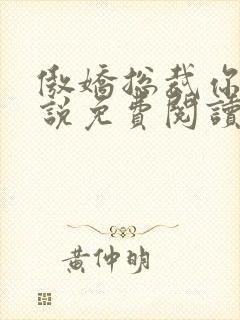 傲嬌總裁你
說免費閱讀
黃仲明